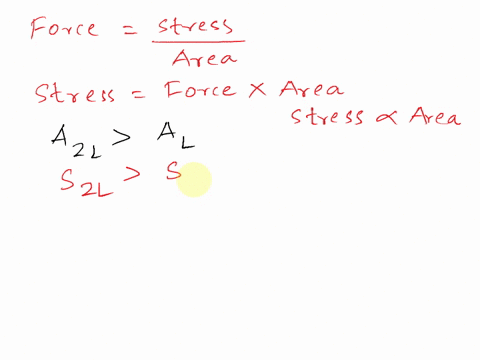 Force = stress / Area
Stress = Force × Area
Stress ∝ Area
A2L > AL
S2L > S